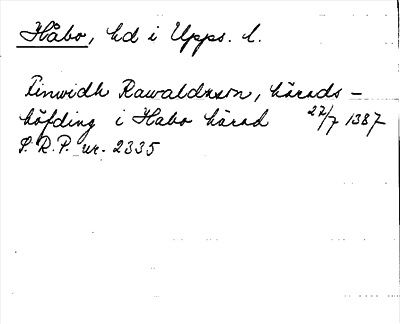 Håbo, hd i Upps. l.
Finwidh Rawaldsson, härads-
höfding i Habo härad 27/7 1387
S.R.P. nr. 2335